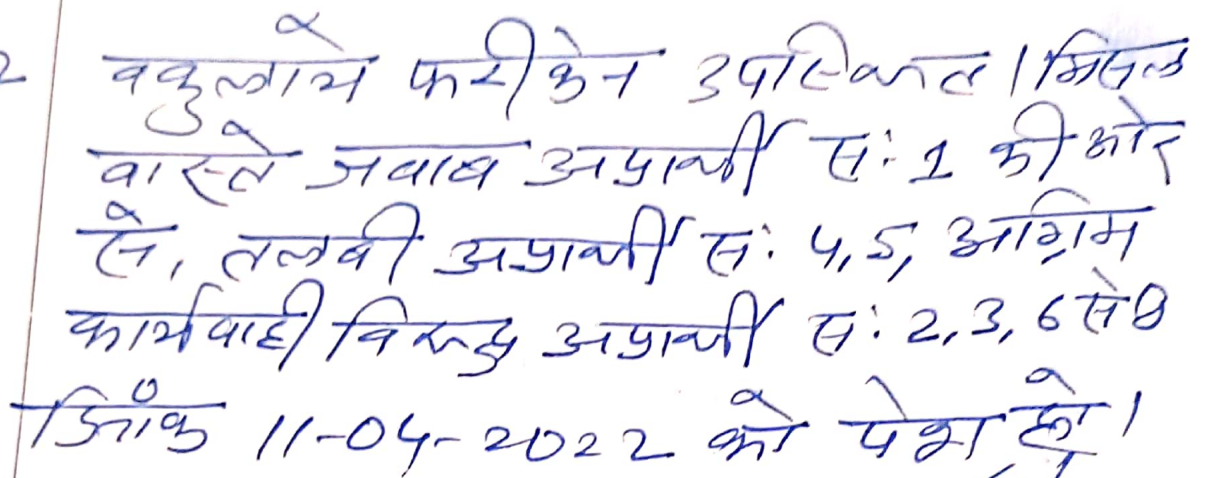 2 वकुलाये फरीकेन उपस्थित। मिसल
वास्ते जवाब अप्रार्थी सं: 1 की ओर
से, तलबी अप्रार्थी सं: 4,5, अग्रिम
कार्यवाही विरूद्ध अप्रार्थी सं: 2,3,6 से 8
दिनाँक 11-04-2022 को पेश हो।